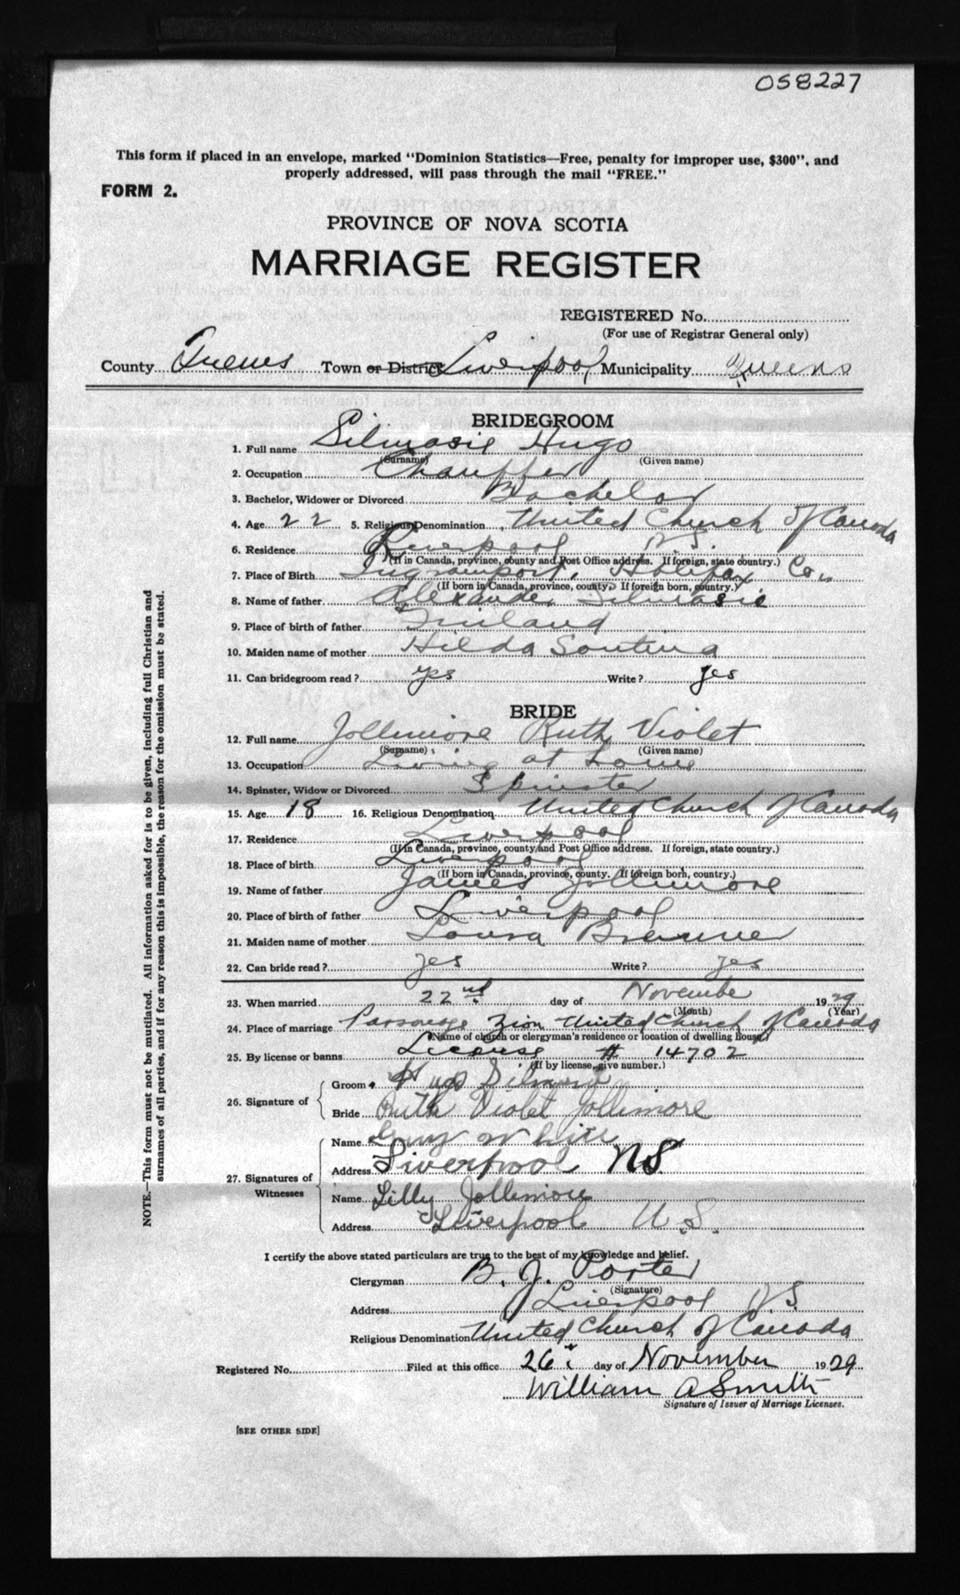 058227
This form if placed in an envelope, marked "Dominion Statistics—Free, penalty for improper use, $300", and
properly addressed, will pass through the mail "FREE."
FORM 2.
PROVINCE OF NOVA SCOTIA
MARRIAGE REGISTER
REGISTERED No.
(For use of Registrar General only)
County Queens Town or District Liverpool Municipality Queens
BRIDEGROOM
1. Full name Silmasie Hugo
(Surname) (Given name)
2. Occupation Chauffer
3. Bachelor, Widower or Divorced Bachelor
4. Age 22 5. Religious Denomination United Church of Canada
6. Residence Liverpool N.S.
(If in Canada, province, county and Post Office address. If foreign, state country.)
7. Place of Birth Ingramport, Halifax Co.,
(If born in Canada, province, county. If foreign born, country.)
8. Name of father Alexander Silmasie
9. Place of birth of father Finland
10. Maiden name of mother Hilda
11. Can bridegroom read? yes Write? yes
BRIDE
12. Full name Jollimore Ruth Violet
(Surname) (Given name)
13. Occupation Living at home
14. Spinster, Widow or Divorced Spinster
15. Age 18 16. Religious Denomination United Church of Canada
17. Residence Liverpool
(If in Canada, province, county and Post Office address. If foreign, state country.)
18. Place of birth Liverpool
(If born in Canada, province, county. If foreign born, country.)
19. Name of father James Jollimore
20. Place of birth of father Liverpool
21. Maiden name of mother Laura
22. Can bride read? yes Write? yes
23. When married 22nd day of November 1929
(Month) (Year)
24. Place of marriage Parsonage Zion United Church of Canada
(Name of church or clergyman's residence or location of dwelling house.)
25. By license or banns License # 14702
(If by license, give number.)
26. Signature of
Groom Hugo
Bride Ruth Violet Jollimore
27. Signatures of Witnesses
Name Guy White
Address Liverpool NS
Name Lilly Jollimore
Address Liverpool N.S.
I certify the above stated particulars are true to the best of my knowledge and belief.
Clergyman B. J. Porter
(Signature)
Address Liverpool N.S.
Religious Denomination United Church of Canada
Registered No. Filed at this office 26th day of November 1929
William A Smith
Signature of Issuer of Marriage Licenses.
[SEE OTHER SIDE]
NOTE.—This form must not be mutilated. All information asked for is to be given, including full Christian and
surnames of all parties, and if for any reason this is impossible, the reason for the omission must be stated.